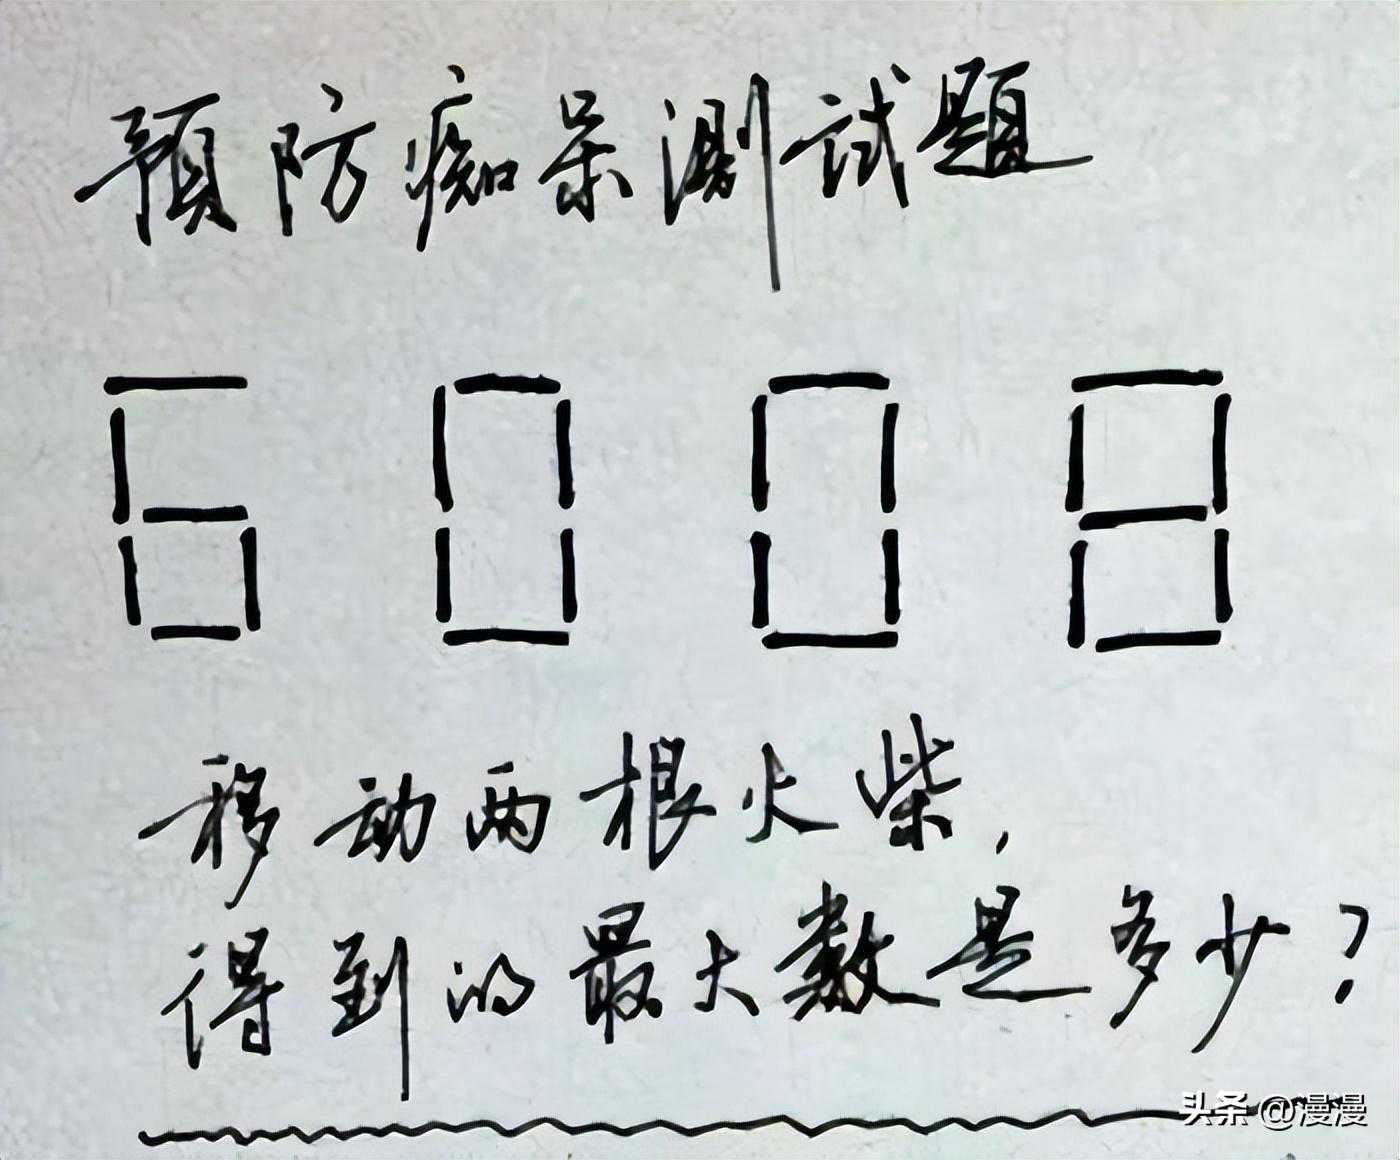 预防痴呆测试题
6008
移动两根火柴，
得到的最大数是多少？
头条 @漫漫